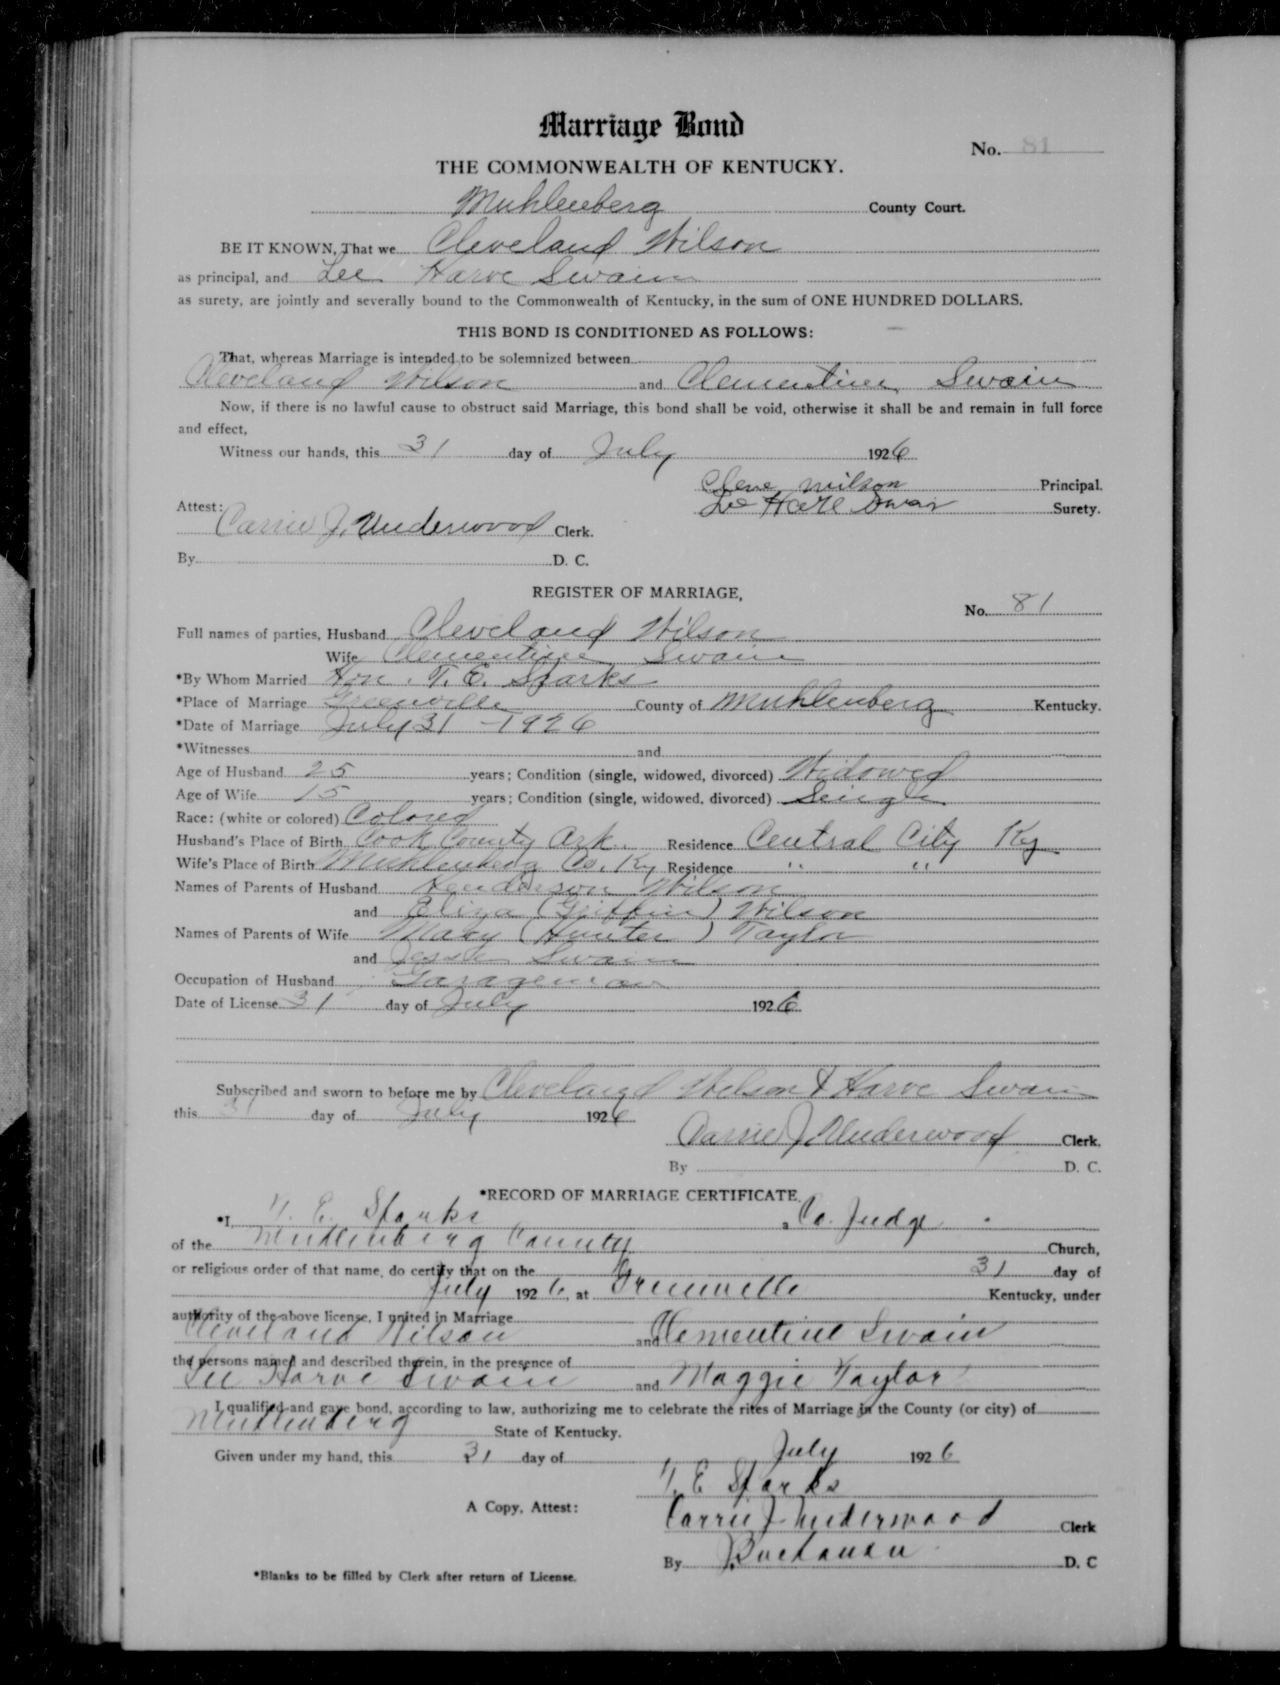 Marriage Bond
No. 81
THE COMMONWEALTH OF KENTUCKY.
Muhlenberg County Court.
BE IT KNOWN, That we Cleveland Wilson
as principal, and Lee Harve Swain
as surety, are jointly and severally bound to the Commonwealth of Kentucky, in the sum of ONE HUNDRED DOLLARS.
THIS BOND IS CONDITIONED AS FOLLOWS:
That, whereas Marriage is intended to be solemnized between
Cleveland Wilson and Clementine Swain
Now, if there is no lawful cause to obstruct said Marriage, this bond shall be void, otherwise it shall be and remain in full force
and effect,
Witness our hands, this 31 day of July 1926
Cleve Wilson Principal.
Attest: Lee Swain Surety.
Carrie J. Underwood Clerk.
By D. C.
REGISTER OF MARRIAGE,
No. 81
Full names of parties, Husband Cleveland Wilson
Wife Clementine Swain
*By Whom Married Hon. T. E. Sparks
*Place of Marriage Greenville County of Muhlenberg Kentucky.
*Date of Marriage July 31 - 1926
*Witnesses and
Age of Husband 25 years; Condition (single, widowed, divorced) Widowed
Age of Wife 15 years; Condition (single, widowed, divorced) Single
Race: (white or colored) Colored
Husband's Place of Birth Cook County Ark. Residence Central City Ky
Wife's Place of Birth Muhlenberg Co. Ky Residence " "
Names of Parents of Husband Henderson Wilson
and Eliza (Griffin) Wilson
Names of Parents of Wife Mary (Hunter) Taylor
and Jesse Swain
Occupation of Husband Garageman
Date of License 31 day of July 1926
Subscribed and sworn to before me by Cleveland Wilson & Harve Swain
this 31 day of July 1926
Carrie J. Underwood Clerk.
By D. C.
*RECORD OF MARRIAGE CERTIFICATE.
*I, T. E. Sparks, Co. Judge
of the Muhlenberg County Church,
or religious order of that name, do certify that on the 31 day of
July 1926, at Greenville Kentucky, under
authority of the above license, I united in Marriage
Cleveland Wilson and Clementine Swain
the persons named and described therein, in the presence of
Lee Harve Swain and Maggie Taylor
I qualified and gave bond, according to law, authorizing me to celebrate the rites of Marriage in the County (or city) of
Muhlenberg State of Kentucky.
Given under my hand, this 31 day of July 1926
T. E Sparks
A Copy, Attest: Carrie J. Underwood Clerk
By J Buchanan D. C
*Blanks to be filled by Clerk after return of License.